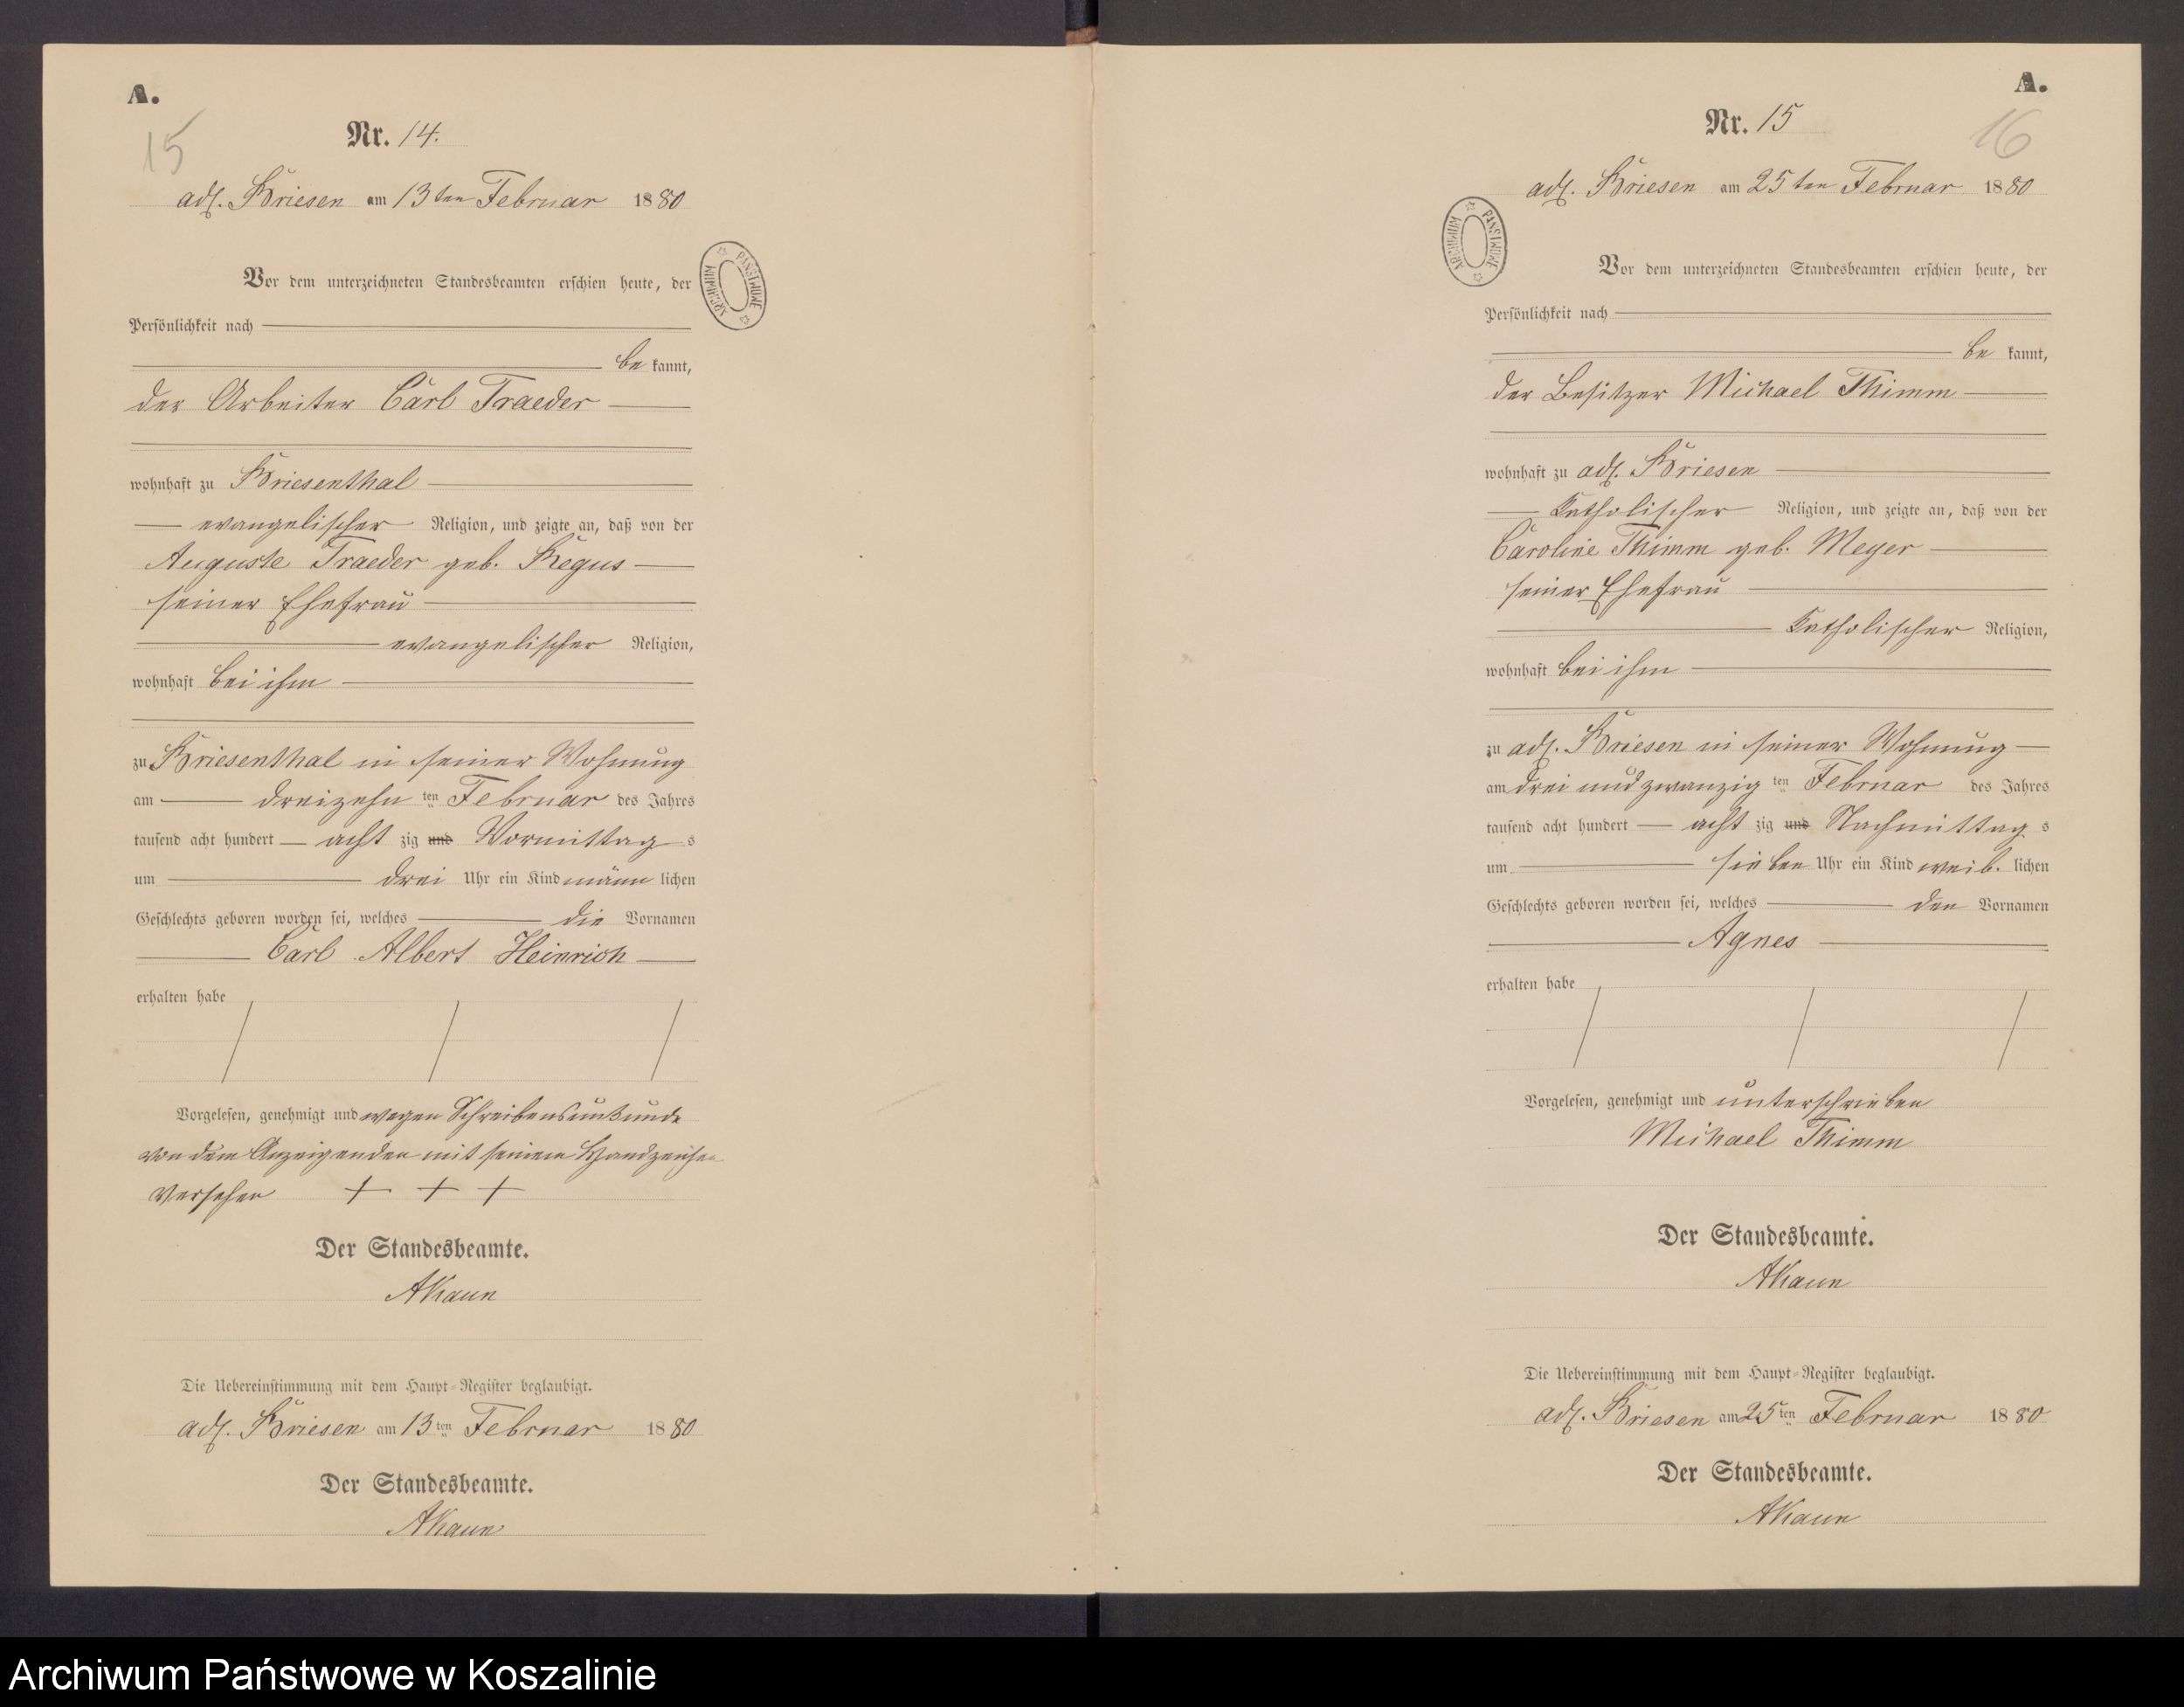 A.
15
Nr. 14.
adl. Briesen am 13ten Februar 1880
Vor dem unterzeichneten Standesbeamten erschien heute, der
Persönlichkeit nach
be kannt,
der Arbeiter Carl Traeder
wohnhaft zu Briesenthal
evangelischer Religion, und zeigte an, daß von der
Auguste Traeder geb.
seiner Ehefrau
evangelischer Religion,
wohnhaft bei ihm
zu Briesenthal in seiner Wohnung
am dreizehn ten Februar des Jahres
tausend acht hundert acht zig und Vormittag s
um drei Uhr ein Kind männ lichen
Geschlechts geboren worden sei, welches die Vornamen
Carl Albert Heinrich
erhalten habe
Vorgelesen, genehmigt und wegen Schreibensunkunde
von dem Anzeigenden mit seinem Handzeichen
versehen + + +
Der Standesbeamte.
AKaun
Die Uebereinstimmung mit dem Haupt-Register beglaubigt.
adl. Briesen am 13ten Februar 1880
Der Standesbeamte.
AKaun
ARCHIWUM PAŃSTWOWE
A.
16
Nr. 15
adl. Briesen am 25ten Februar 1880
Vor dem unterzeichneten Standesbeamten erschien heute, der
Persönlichkeit nach
be kannt,
der Besitzer Michael Thimm
wohnhaft zu adl. Briesen
Katholischer Religion, und zeigte an, daß von der
Caroline Thimm geb. Meyer
seiner Ehefrau
Katholischer Religion,
wohnhaft bei ihm
zu adl. Briesen in seiner Wohnung
am drei und zwanzig ten Februar des Jahres
tausend acht hundert acht zig und Nachmittag s
um sieben Uhr ein Kind weib. lichen
Geschlechts geboren worden sei, welches den Vornamen
Agnes
erhalten habe
Vorgelesen, genehmigt und unterschrieben
Michael Thimm
Der Standesbeamte.
AKaun
Die Uebereinstimmung mit dem Haupt-Register beglaubigt.
adl. Briesen am 25ten Februar 1880
Der Standesbeamte.
AKaun
ARCHIWUM PAŃSTWOWE
Archiwum Państwowe w Koszalinie